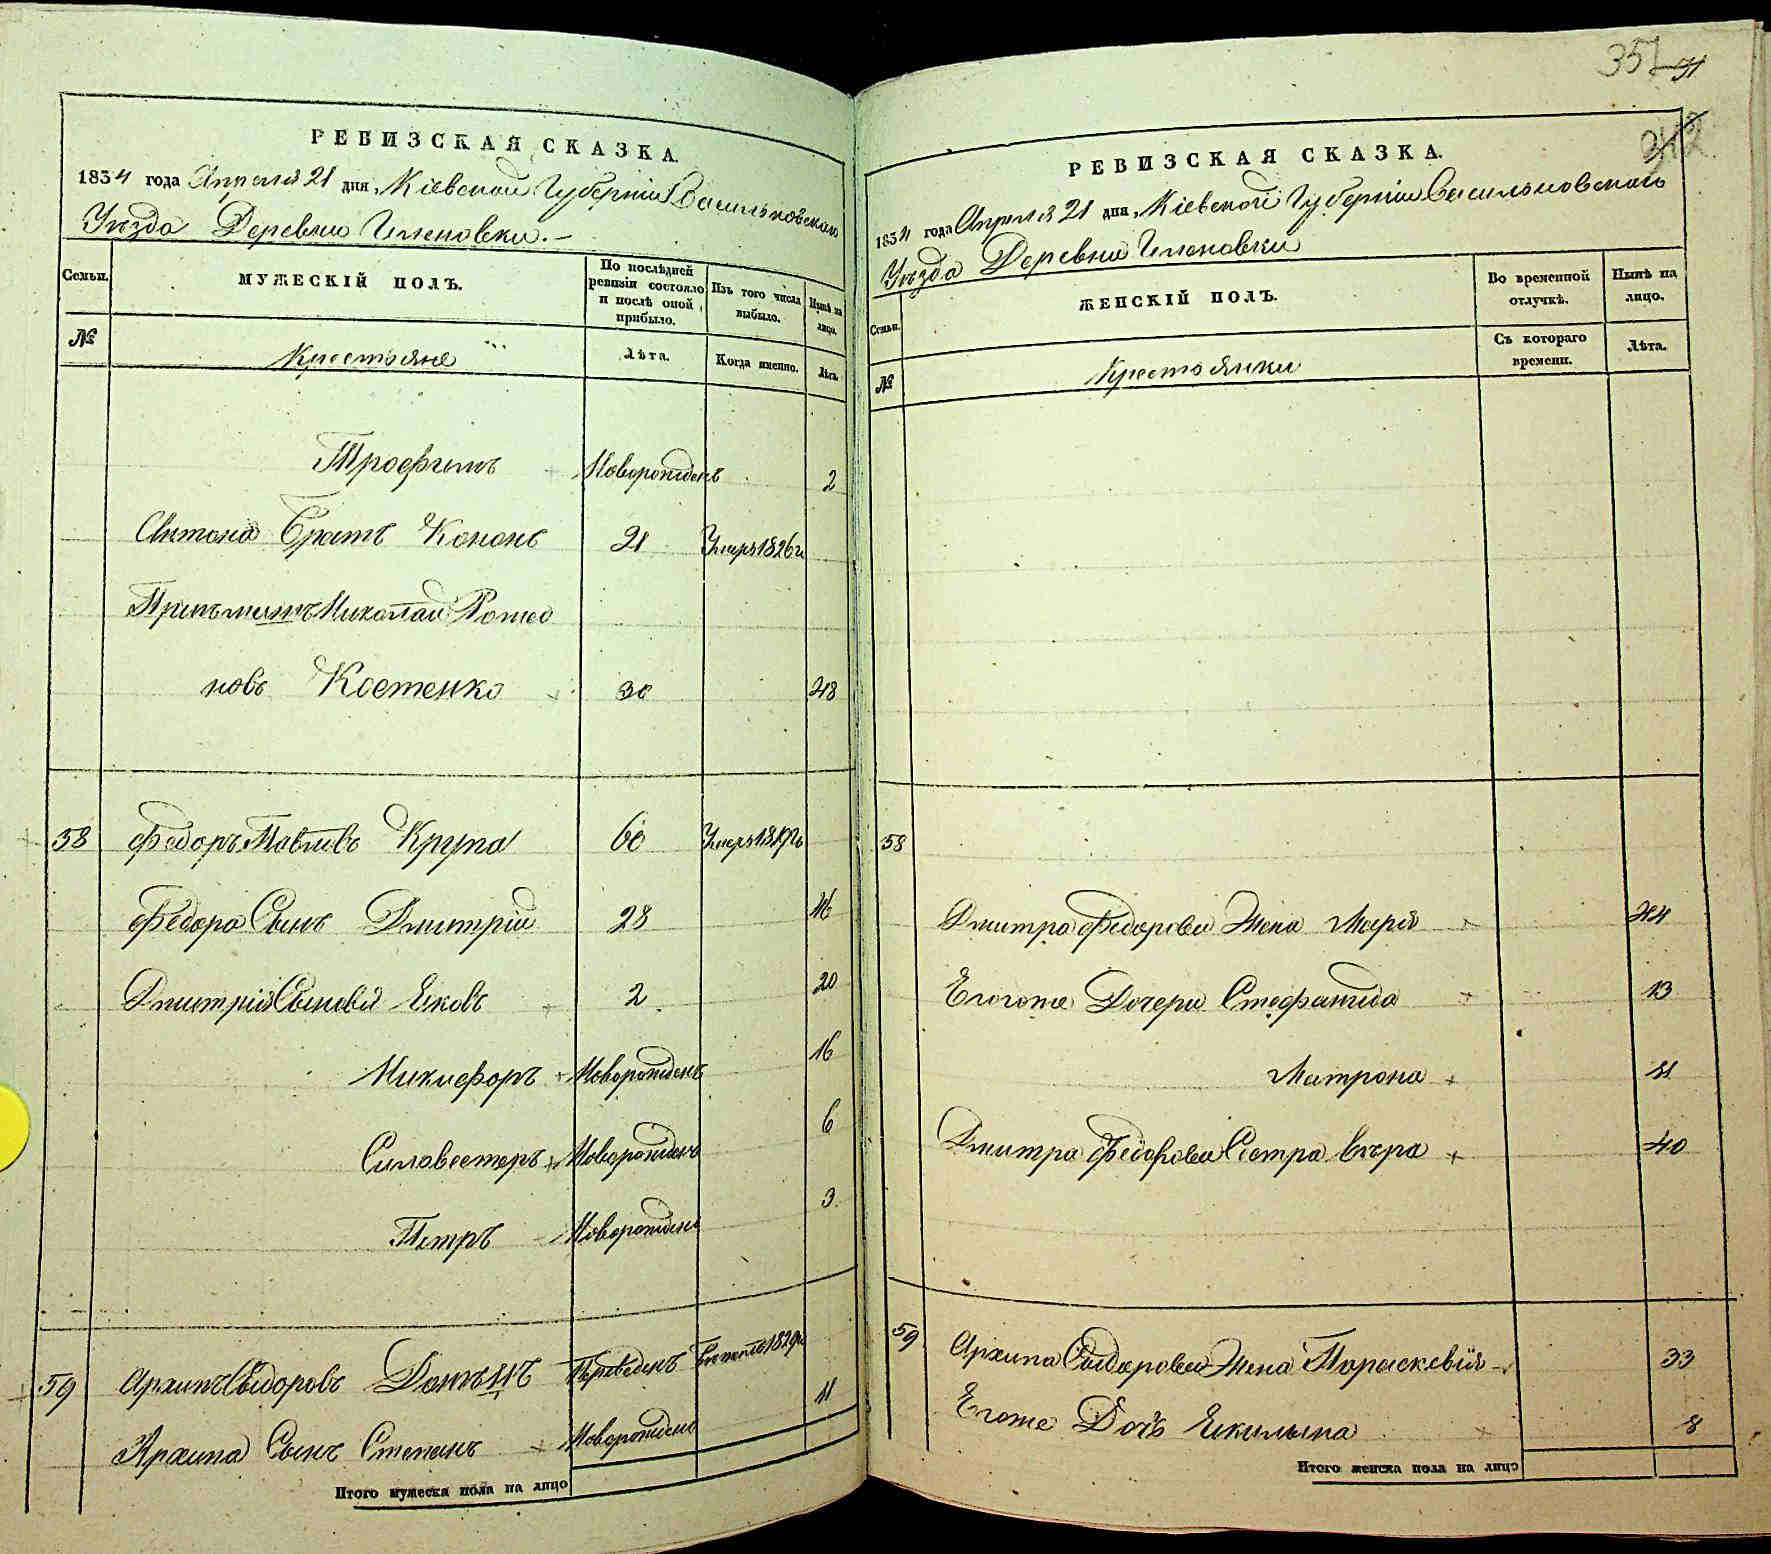 РЕВИЗСКАЯ СКАЗКА.
1834 года Апреля 21 дня, Кіевской Губерніи Васильковскаго
Уѣзда Деревни
Семьи.
МУЖЕСКІЙ ПОЛЪ.
По послѣдней ревизіи состояло и послѣ оной прибыло.
Изъ того числа выбыло.
Нынѣ на лицо.
№
Крестьяне
Лѣта.
Когда именно.
Лѣта.
Трофимъ Новорожденъ 2
Антона Братъ Кононъ 21 Умеръ 1826г
Николай
новъ Костенко 30 48
58 Федоръ Павловъ Круга 60 Умеръ
Федора Сынъ Дмитрій 28
Дмитрія Сыновья Яковъ 2 20
Никифоръ Новорожденъ 16
Силвестеръ Новорожденъ 6
Петръ Новорожденъ 3
59 Архипъ Сидоровъ 1829г
Архипа Сынъ Степанъ Новорожденъ 11
Итого мужеска пола на лицо
357
РЕВИЗСКАЯ СКАЗКА.
1834 года Апреля 21 дня, Кіевской Губерніи Васильковскаго
Уѣзда Деревни
Семьи.
ЖЕНСКІЙ ПОЛЪ.
Во временной отлучкѣ.
Нынѣ на лицо.
№
Крестьянки
Съ котораго времени.
Лѣта.
58
Дмитра Федорова Жена Марія 44
Егоже Дочери Стефанида 13
Матрона 11
Дмитра Федорова Сестра Вѣра 40
59 Архипа Сидорова Жена Параскевія 33
Егоже Дочь Акилына 8
Итого женска пола на лицо